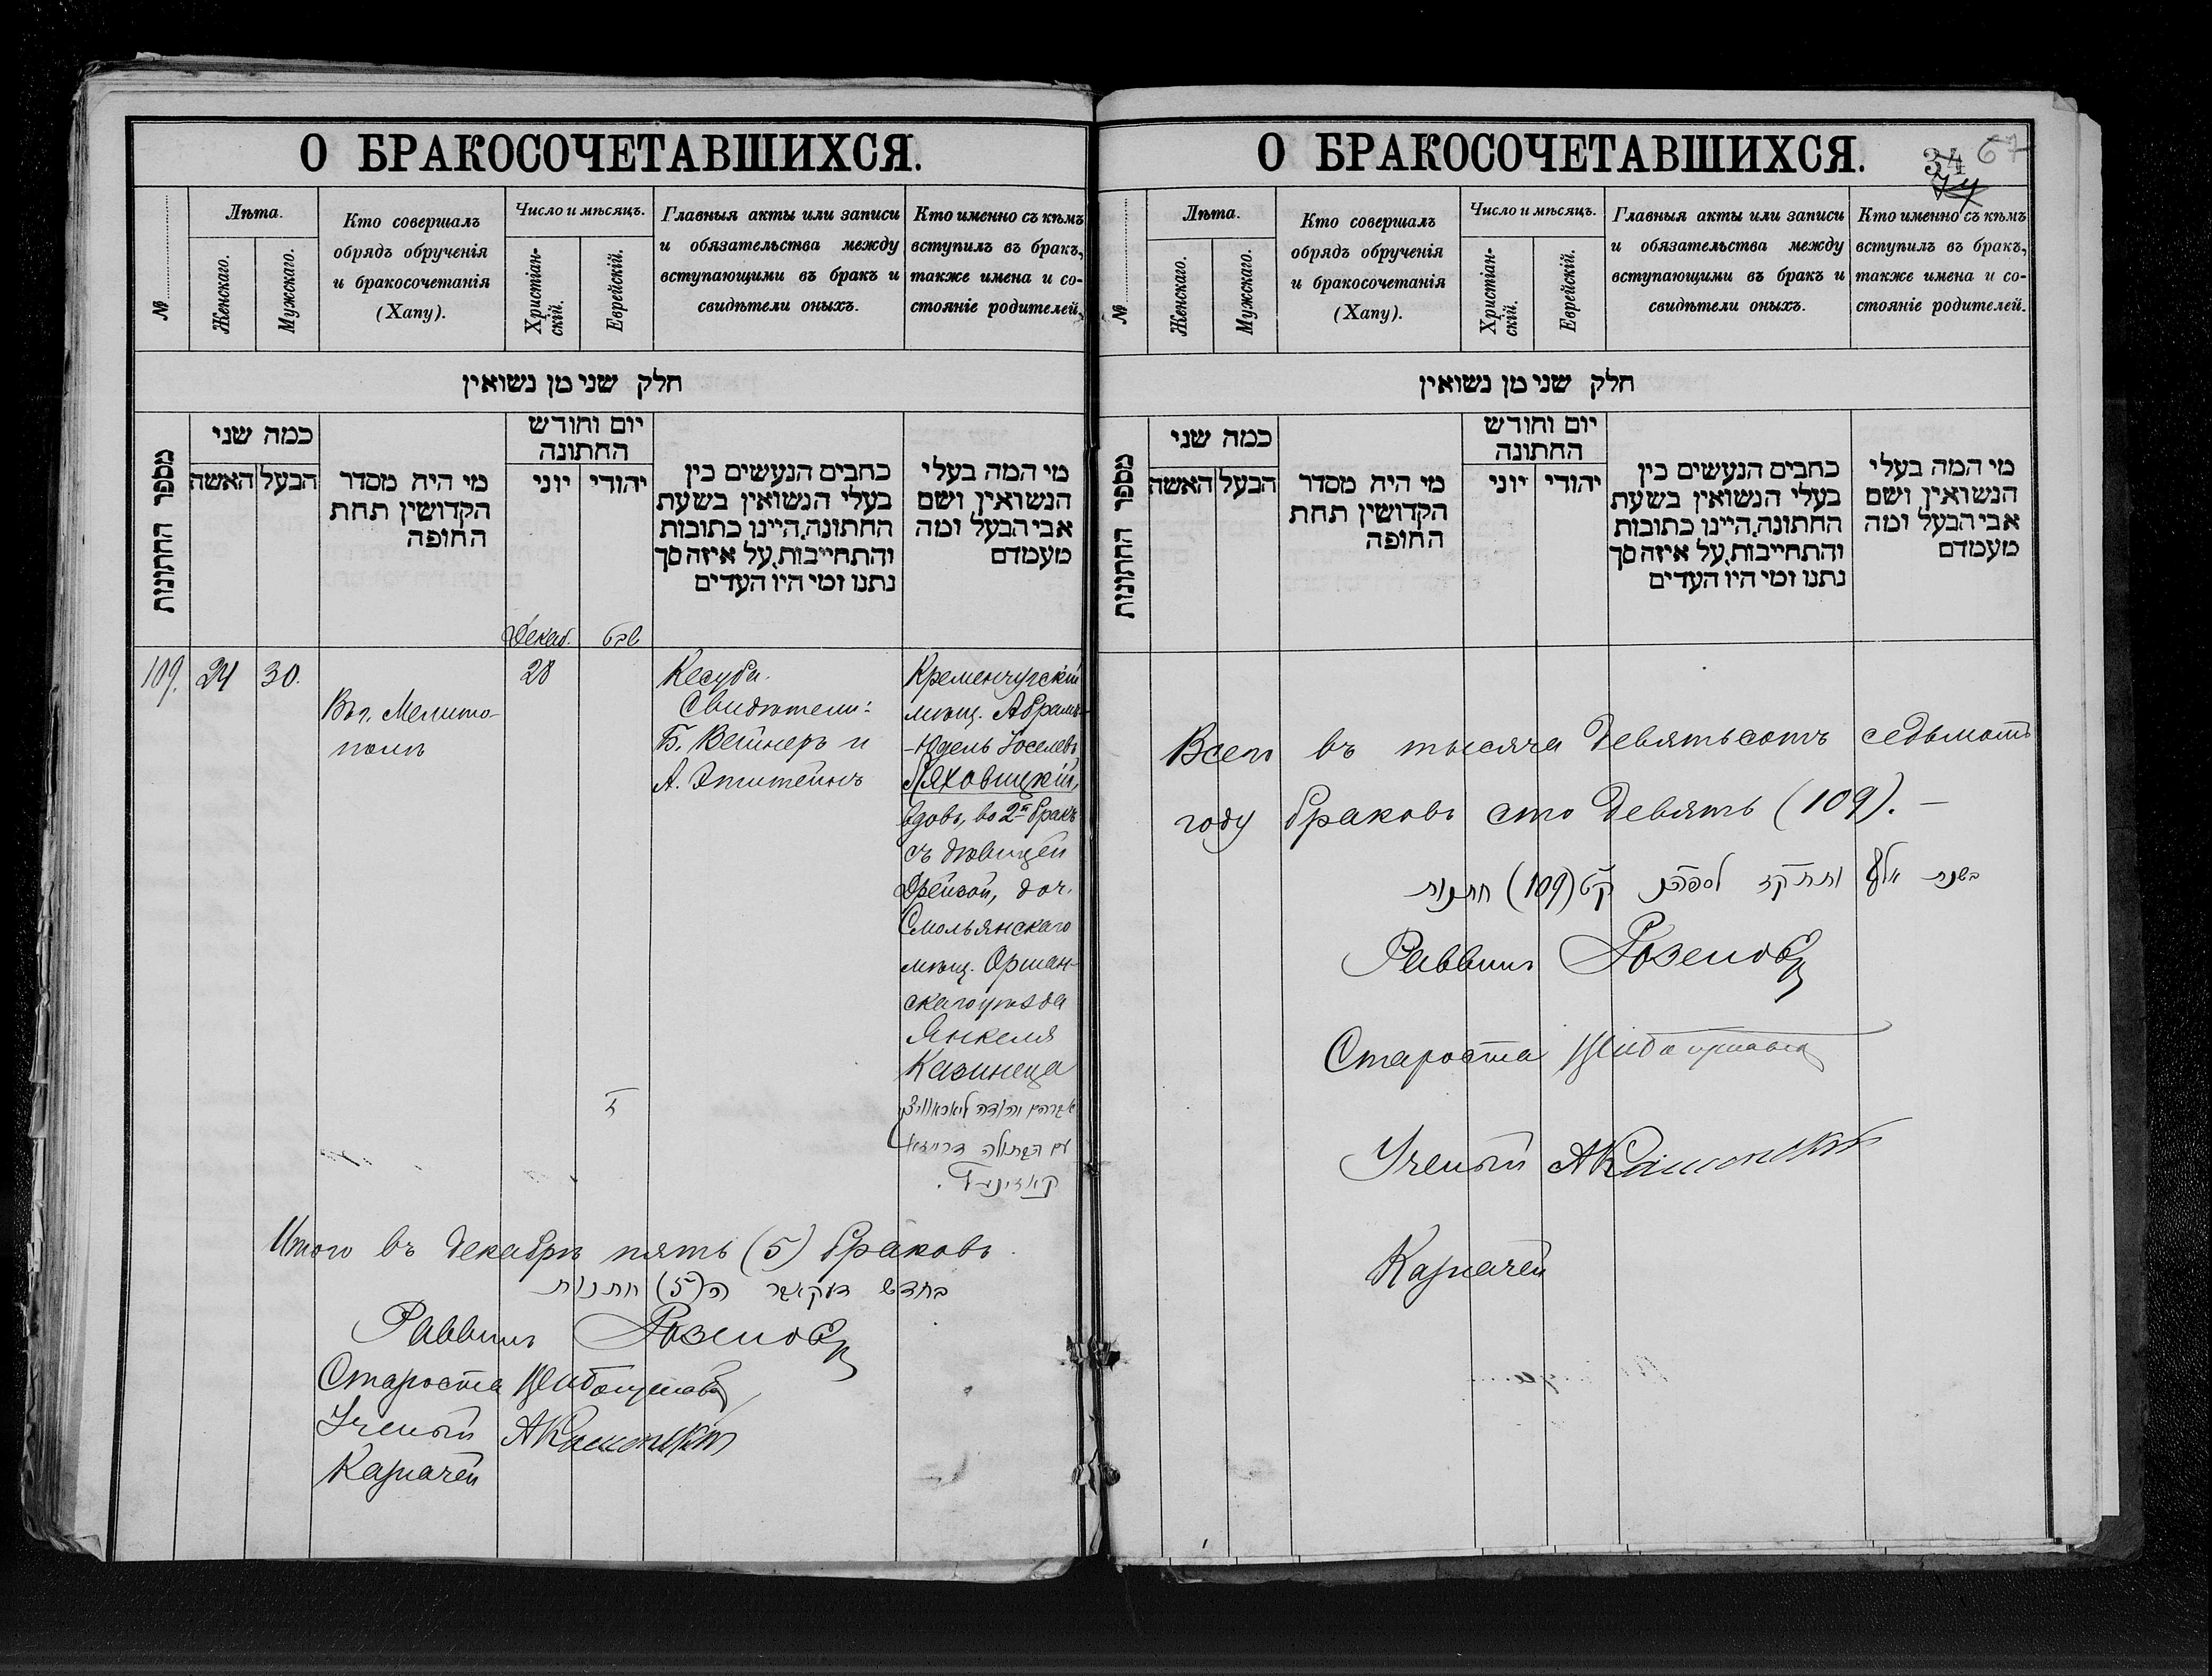 О БРАКОСОЧЕТАВШИХСЯ.
№
Лѣта.
Женскаго.
Мужскаго.
Кто совершалъ
обрядъ обрученія
и бракосочетанія
(Хапу).
Число и мѣсяцъ.
Христіан-
скій.
Еврейскій.
Главныя акты или записи
и обязательства между
вступающими въ бракъ и
свидѣтели оныхъ.
Кто именно съ кѣмъ
вступилъ въ бракъ,
также имена и со-
стояніе родителей.
חלק שני מן נשואין
מספר החתונות
כמה שני
האשה
הבעל
מי היה מסדר
הקדושין תחת
החופה
יום וחודש
החתונה
יוני
יהודי
כתבים הנעשים בין
בעלי הנשואין בשעת
החתונה, היינו כתובות
והתחייבות, על איזה סך
נתנו ומי היו העדים
מי המה בעלי
הנשואין ושם
אבי הבעל ומה
מעמדם
Декаб.
שבט
109.
24
30.
Въ г. Мелито-
полѣ
28
Кесуба.
Свидѣтели:
Б. Вейнеръ и
А. Эпштейнъ
Кременчугскій
мѣщ. Абрамъ-
-Юдель Іоселевъ
Ляховицкій,
вдовъ, во 2й бракъ
съ дѣвицей
Дрейзой, доч.
Смольянскаго
мѣщ. Оршан-
скаго уѣзда
Янкеля
Казинеца
ד
אברהם יהודה ליאכאוויצקי
עם הבתולה דרייזא
קאזינעץ.
Итого въ декабрѣ пять (5) браковъ.
בחדש דעקאבר ה(5) חתנות
Раввинъ
Староста
Ученый
Казначей
О БРАКОСОЧЕТАВШИХСЯ.
34
67
№
Лѣта.
Женскаго.
Мужскаго.
Кто совершалъ
обрядъ обрученія
и бракосочетанія
(Хапу).
Число и мѣсяцъ.
Христіан-
скій.
Еврейскій.
Главныя акты или записи
и обязательства между
вступающими въ бракъ и
свидѣтели оныхъ.
Кто именно съ кѣмъ
вступилъ въ бракъ,
также имена и со-
стояніе родителей.
חלק שני מן נשואין
מספר החתונות
כמה שני
האשה
הבעל
מי היה מסדר
הקדושין תחת
החופה
יום וחודש
החתונה
יוני
יהודי
כתבים הנעשים בין
בעלי הנשואין בשעת
החתונה, היינו כתובות
והתחייבות, על איזה סך
נתנו ומי היו העדים
מי המה בעלי
הנשואין ושם
אבי הבעל ומה
מעמדם
Всего въ тысяча девятьсотъ седьмомъ
году браковъ сто девять (109). —
בשנת אלף ותתקז לספהנ קט (109) חתנות
Раввинъ
Староста
Ученый
Казначей